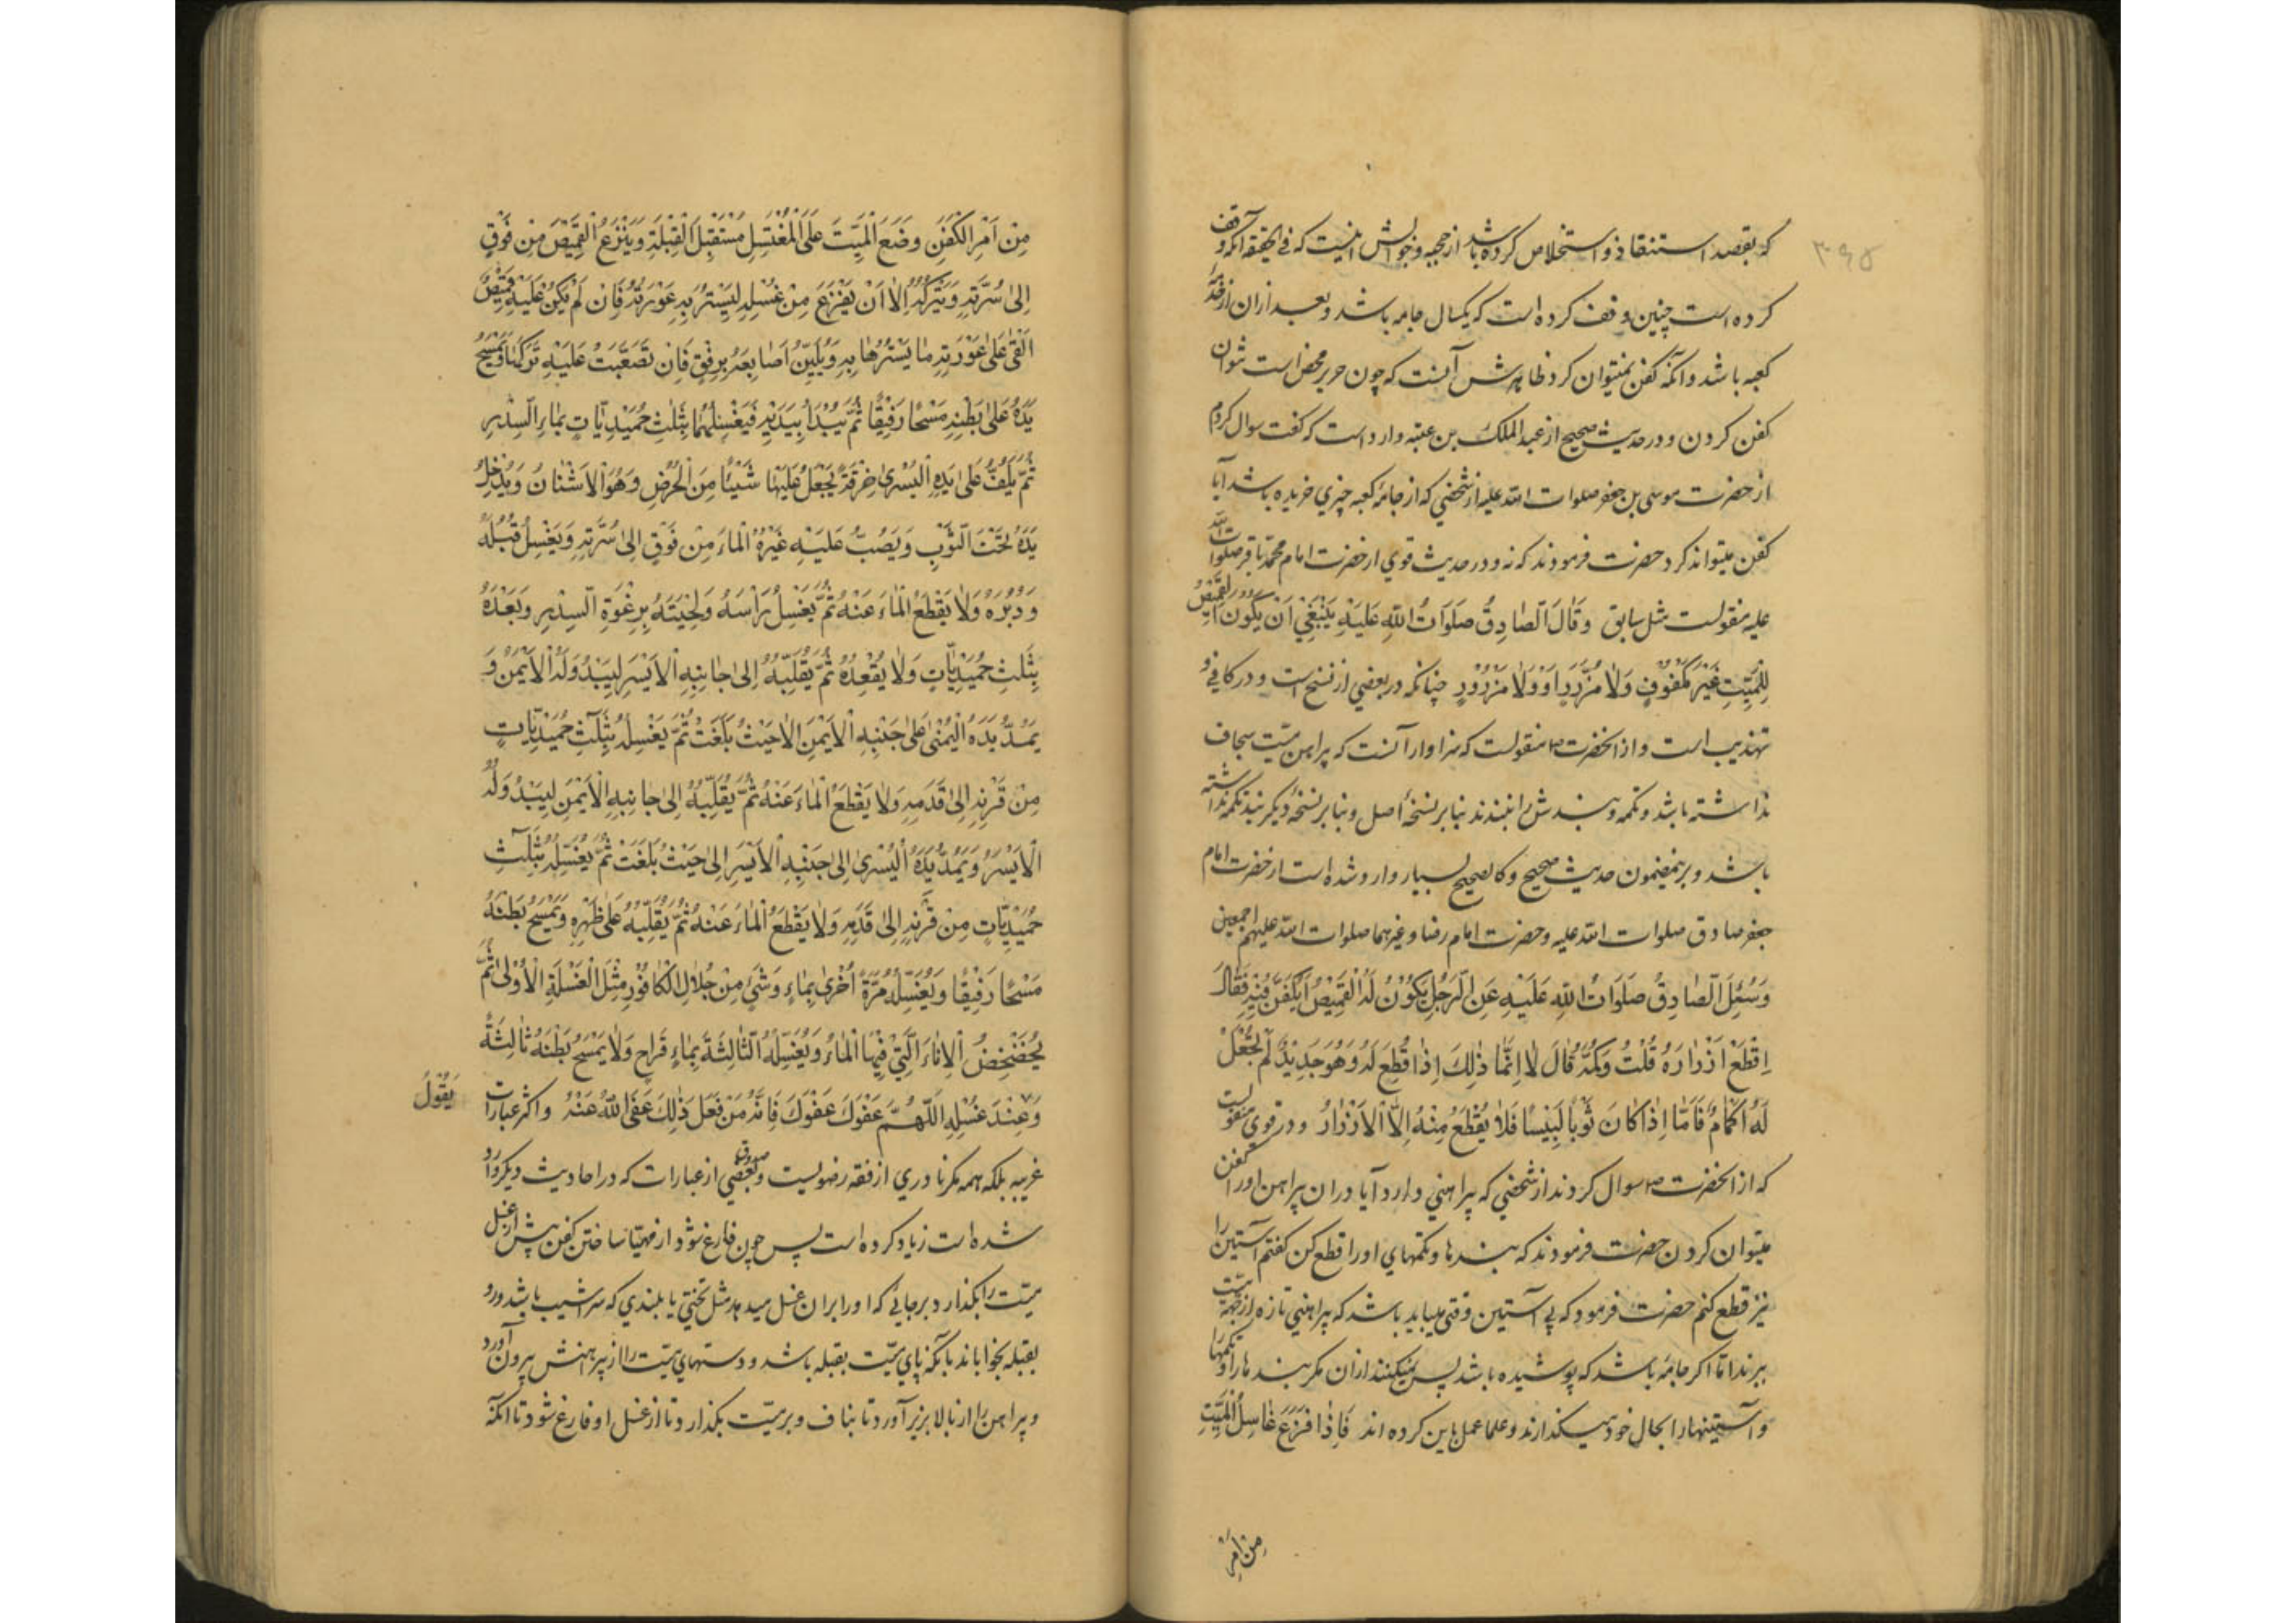 ۳۹۵
که بقصد استنقاذ و استخلاص کرده باشد از حجبه و خوابش اینست که فی الحقیقه آنکه وقف
کرده است چنین وقف کرده است که یکسال جامه باشد و بعد ازان از خدمه
کعبه باشد و آنکه کفن نمیتوان کرد ظاهرش آنست که چون حریر محض است نتوان
کفن کردن و در حدیث صحیح از عبد الملک بن عتبه وارد است که گفت سوال کردم
از حضرت موسی بن جعفر صلوات الله علیه از شخصی که از جامه کعبه چیزی خریده باشد آیا
کفن میتواند کرد حضرت فرمودند که نه و در حدیث قوی از حضرت امام محمد باقر صلوات الله
علیه منقولست مثل سابق وَقَالَ الصَّادِقُ صَلَوَاتُ اللهِ عَلَيْهِ يَنْبَغِي اَنْ يَكُونَ الْقَمِيصُ
لِلْمَيِّتِ غَيْرَ مَكْفُوفٍ وَلَا مُزَرَّرٍ اَوْ وَلَا مَزْرُورٍ چنانکه در بعضی از نسخ است و در کافی و
تهذیب است و از انحضرت ص منقولست که سزاوار آنست که پیراهن میّت سجاف
نداشته باشد و تکمه و بندش را نبندند بنا بر نسخهٔ اصل و بنا بر نسخهٔ دیگر بند تکمه نداشته
باشد و بر نهمضمون حدیث صحیح و کالصحیح بسیار وارد شده است از حضرت امام
جعفر صادق صلوات الله علیه و حضرت امام رضا و غیرهما صلوات الله علیهم اجمعین
وَسُئِلَ الصَّادِقُ صَلَوَاتُ اللهِ عَلَيْهِ عَنِ الرَّجُلِ يَكُوْنُ لَهُ الْقَمِيصُ اَيُكَفَّنُ فِيْهِ فَقَالَ
اِقْطَعْ اَزْرَارَهُ قُلْتُ وَكُمَّهُ قَالَ لَا اِنَّمَا ذٰلِكَ اِذَا قُطِعَ لَهُ وَهُوَ جَدِيْدٌ لَمْ يُجْعَلْ
لَهُ اَكْمَامٌ فَاَمَّا اِذَا كَانَ ثَوْبًا لَبِيْسًا فَلَا يُقْطَعُ مِنْهُ اِلَّا الْاَزْرَارُ و در قوی منقولست
که از انحضرت ص سوال کردند از شخصی که پیراهنی دارد آیا دران پیراهن او را کفن
میتوان کردن حضرت فرمودند که بندها و تکمهای او را قطع کن گفتم آستین را
نیز قطع کنم حضرت فرمود که بی آستین وقتی میباید باشد که پیراهنی تازه از جهة میّت
ببرند اما اکر جامهٔ باشد که پوشیده باشد پس نمیکنند ازان مگر بندها را و تکمها را
و آستینها را بحال خود میگذارند و علما عمل باین کرده اند فَاِذَا فَرَغَ غَاسِلُ الْمَيِّتِ
مِنْ اَمْرِ
مِنْ اَمْرِ الْكَفَنِ وَضَعَ الْمَيِّتَ عَلَى الْمُغْتَسَلِ مُسْتَقْبِلَ الْقِبْلَةِ وَيَنْزِعُ الْقَمِيْصَ مِنْ فَوْقٍ
اِلٰى سُرَّتِهِ وَيَتْرُكُهُ اِلٰى اَنْ يَفْرُغَ مِنْ غُسْلِهِ لِيَسْتُرَ بِهِ عَوْرَتَهُ فَاِنْ لَمْ يَكُنْ عَلَيْهِ قَمِيْصٌ
اَلْقٰى عَلٰى عَوْرَتِهِ مَا يَسْتُرُهَا بِهِ وَيُلَيِّنُ اَصَابِعَهُ بِرِفْقٍ فَاِنْ تَصَعَّبَتْ عَلَيْهِ تَرَكَهَا وَيَمْسَحُ
يَدَهُ عَلٰى بَطْنِهِ مَسْحًا رَفِيْقًا ثُمَّ يَبْدَأُ بِيَدَيْهِ فَيَغْسِلُهُمَا بِثَلٰثِ حُمَيْدِيَّاتٍ بِمَاءِ السِّدْرِ
ثُمَّ يَلُفُّ عَلٰى يَدِهِ الْيُسْرٰى خِرْقَةً يَجْعَلُ عَلَيْهَا شَيْئًا مِنَ الْحُرُضِ وَهُوَ الْاَشْنَانُ وَيُدْخِلُ
يَدَهُ تَحْتَ الثَّوْبِ وَيَصُبُّ عَلَيْهِ غَيْرُهُ الْمَاءَ مِنْ فَوْقٍ اِلٰى سُرَّتِهِ وَيَغْسِلُ قُبُلَهُ
وَدُبُرَهُ وَلَا يَقْطَعُ الْمَاءَ عَنْهُ ثُمَّ يَغْسِلُ رَاْسَهُ وَلِحْيَتَهُ بِرِغْوَةِ السِّدْرِ وَبَعْدَهُ
بِثَلٰثِ حُمَيْدِيَّاتٍ وَلَا يُقْعِدُهُ ثُمَّ يُقَلِّبُهُ اِلٰى جَانِبِهِ الْاَيْسَرِ لِيَبْدُوَ لَهُ الْاَيْمَنُ وَ
يَمُدُّ يَدَهُ الْيُمْنٰى عَلٰى جَنْبِهِ الْاَيْمَنِ اِلٰى حَيْثُ بَلَغَتْ ثُمَّ يَغْسِلُهُ بِثَلٰثِ حُمَيْدِيَّاتٍ
مِنْ قَرْنِهِ اِلٰى قَدَمِهِ وَلَا يَقْطَعُ الْمَاءَ عَنْهُ ثُمَّ يُقَلِّبُهُ اِلٰى جَانِبِهِ الْاَيْمَنِ لِيَبْدُوَ لَهُ
الْاَيْسَرُ وَيَمُدُّ يَدَهُ الْيُسْرٰى اِلٰى جَنْبِهِ الْاَيْسَرِ اِلٰى حَيْثُ بَلَغَتْ ثُمَّ يَغْسِلُهُ بِثَلٰثِ
حُمَيْدِيَّاتٍ مِنْ قَرْنِهِ اِلٰى قَدَمِهِ وَلَا يَقْطَعُ الْمَاءَ عَنْهُ ثُمَّ يُقَلِّبُهُ عَلٰى ظَهْرِهِ وَيَمْسَحُ بَطْنَهُ
مَسْحًا رَفِيْقًا وَيُغَسِّلُهُ مَرَّةً اُخْرٰى بِمَاءٍ وَشَيْءٍ مِنْ جُلَالِ الْكَافُوْرِ مِثْلَ الْغَسْلَةِ الْاُوْلٰى ثُمَّ
يُخَضْخِضُ الْاِنَاءَ الَّتِيْ فِيْهَا الْمَاءُ وَيُغَسِّلُهُ الثَّالِثَةَ بِمَاءٍ قَرَاحٍ وَلَا يَمْسَحُ بَطْنَهُ ثَالِثَةً
وَعِنْدَ غُسْلِهِ اَللّٰهُمَّ عَفْوَكَ عَفْوَكَ فَاِنَّهُ مَنْ فَعَلَ ذٰلِكَ عَفَى اللهُ عَنْهُ و اکثر عبارات
يَقُوْلُ
غریبه بلکه همه مگر نادری از فقه رضویست و بعضی از عبارات که در احادیث دیگر وارد
شده است زیاد کرده است پس چون فارغ شود از مهیّا ساختن کفن پیش از غسل
میّت را بگذارد بر جایی که او را بران غسل میدهد مثل تختی یا بلندی که سراشیب باشد و رو
بقبله بخواباند بآنکه پای میّت بقبله باشد و دستهای میّت را از پیراهنش بیرون آورد
و پیراهن را از بالا بزیر آورد تا بناف و بر میّت بگذارد تا از غسل او فارغ شود تا آنکه